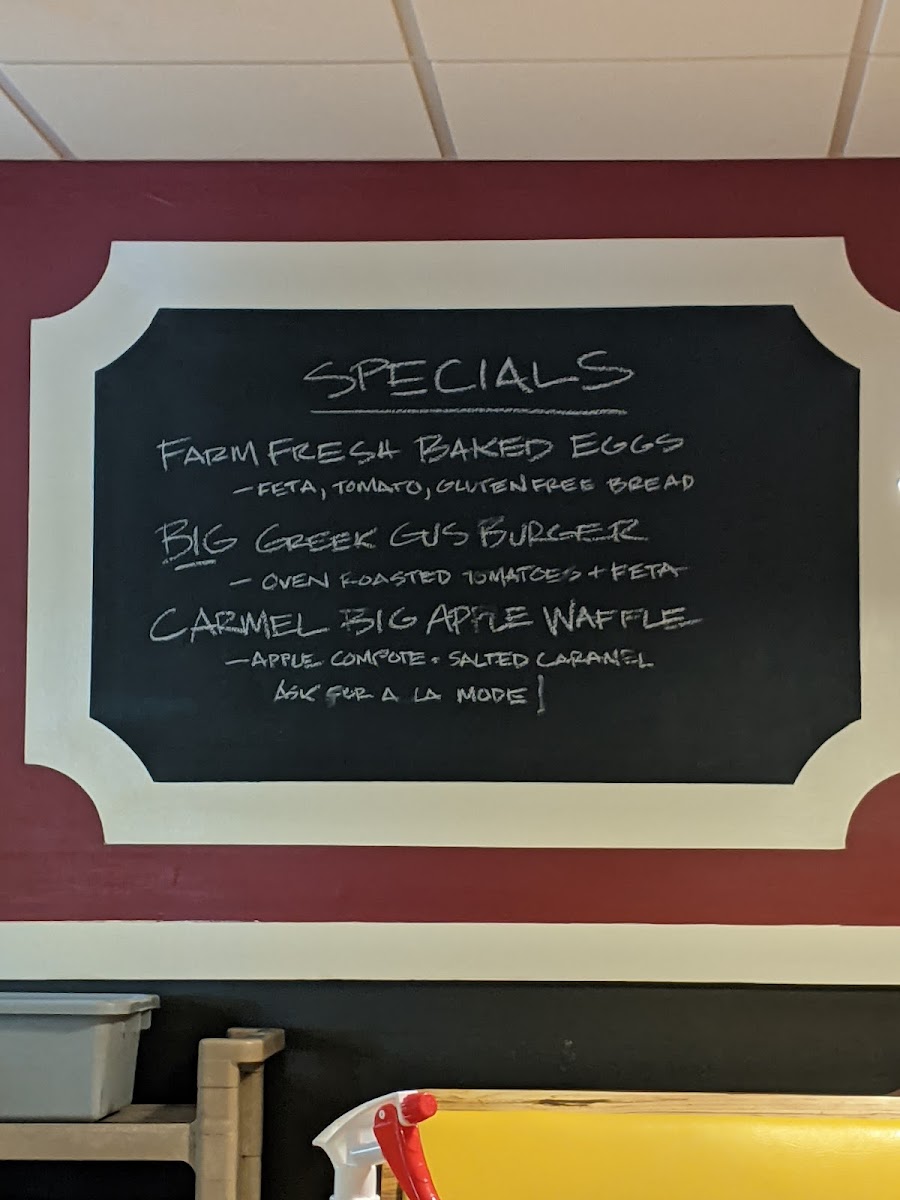 SPECIALS
FARM FRESH BAKED EGGS
- FETA, TOMATO, GLUTEN FREE BREAD
BIG GREEK GUS BURGER
- OVEN ROASTED TOMATOES + FETA
CARMEL BIG APPLE WAFFLE
- APPLE COMPOTE • SALTED CARAMEL
ASK FOR A LA MODE!